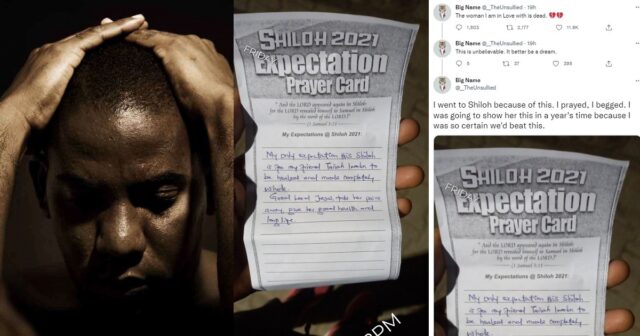 FRIDAY
SHILOH 2021
Expectation
Prayer Card
"And the LORD appeared again in Shiloh
for the LORD revealed himself to Samuel in Shiloh
by the word of the LORD."
(1 Samuel 3:21
My Expectations @ Shiloh 2021:
My only expectation this Shiloh
is my friend to
be healed and made completely
whole.
Good Lord Jesus take her pains
away, give her good health and
long life.
PM
Big Name @_TheUnsullied · 19h
The woman I am in Love with is dead. 💔💔
2,177 11.8K
Big Name @_TheUnsullied · 19h
This is unbelievable. It better be a dream.
5 27 285
Big Name
@_TheUnsullied
I went to Shiloh because of this. I prayed, I begged. I
was going to show her this in a year's time because I
was so certain we'd beat this.
FRIDAY
SHILOH 2021
Expectation
Prayer Card
"And the LORD appeared again in Shiloh
for the LORD revealed himself to Samuel in Shiloh
by the word of the LORD."
(1 Samuel 3:21
My Expectations @ Shiloh 2021:
My only expectation this Shiloh
is my friend to
be healed and made completely
whole.